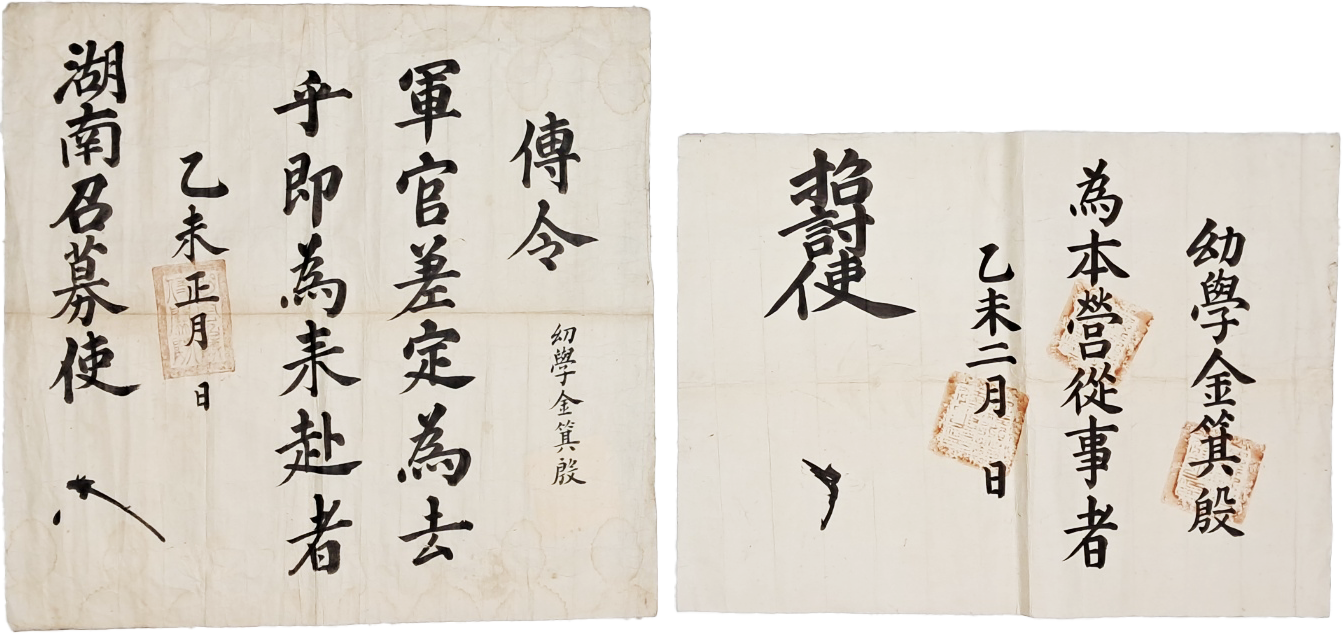 傳令
幼學金箕殷
軍官差定為去
乎即為來赴者
乙未正月 日
湖南召募使
幼學金箕殷
為本營從事者
乙未二月 日
招討使